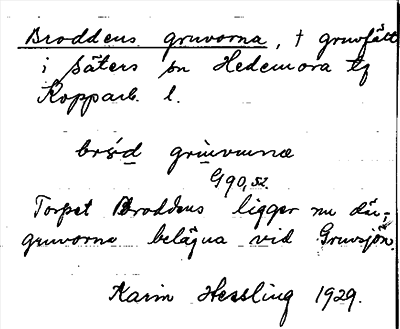 Broddens gruvorna, † gruvfält
i Säters sn Hedemora tg
Kopparb. l.
gruvuna
G 90, 52.
Torpet Broddens ligger nu där;
gruvorna belägna vid Gruvsjön.
Karin Hessling 1929.